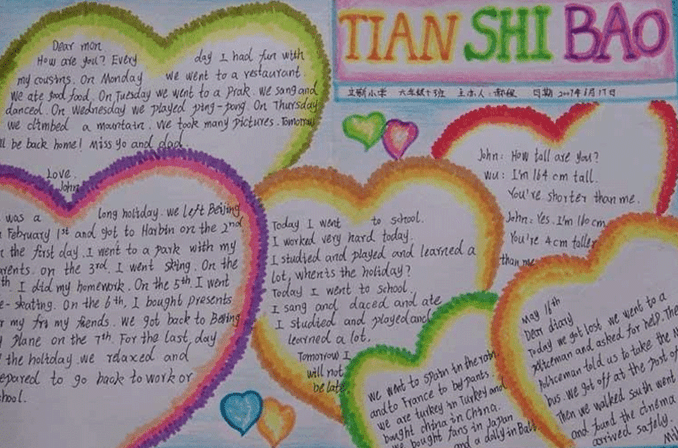 TIAN SHI BAO
Dear mon
How are you? Every day I had fun with
my cousins. On Monday we went to a restaurant.
We ate good food. On Tuesday we went to a prak. We sang and
danced. On Wednesday we played ping-pong. On Thursday
we climbed a mountain. We took many pictures. Tomorrow
ll be back home! Miss yo and dad.
Love.
John
was a long holiday. We left Beijing
February 1st and got to Harbin on the 2nd
the first day. I went to a park with my
rents. on the 3rd I went sking. On the
th I did my homework. On the 5th I went
e-skating. On the 6th, I bought presents
r my friends. We got back to Beijing
plane on the 7th. For the last day
the holiday we rdaxed and
epared to go back to work or
hool.
Today I went to school.
I worked very hard today.
I studied and played and learned a
lot, when's the holiday?
Today I went to school
I sang and daced and ate
I studied and played and
learned a lot.
Tomorrow I
will not
be late
John: How tall are you?
wu: I'm 164 cm tall.
You're shorter than me.
John: Yes. I'm 160 cm
You're 4 cm taller
than me
We went to spain in the rain
and to France to by pants
we are turkey in Turkey and
bught china in China.
We bought fans in Japan
and a dolly in Bali
May 16th
Dear diary
Today we got lost. We went to a
policeman and asked for help. The
policeman told us to take the
bus. We got off at the post of
Then we walked south went
and found the cinema
arrived safely.